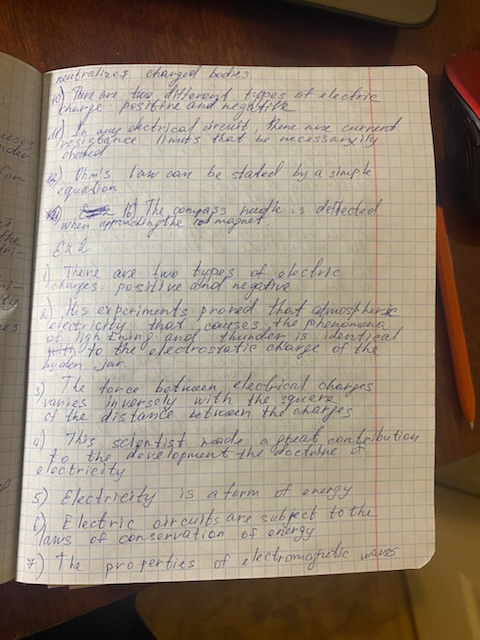 neutralizes charged bodies
10) There are two different types of electric
charge positive and negative
11) In any electrical circuit, there are current
resistance limits that be necessarily
checked
12) Ohm's law can be stated by a simple
equation
16) The compass needle is deflected
when approaching the magnet
Ex 2
1) There are two types of electric
charges: positive and negative
2) His experiments proved that atmospheric
electricity that causes the phenomena
of lightning and thunder is identical
to the electrostatic charge of the
leyden jar.
3) The force between electrical charges
varies inversely with the square
of the distance between the charges
4) This scientist made a great contribution
to the development the doctrine of
electricity
5) Electricity is a form of energy
6) Electric circuits are subject to the
laws of conservation of energy
7) The properties of electromagnetic waves